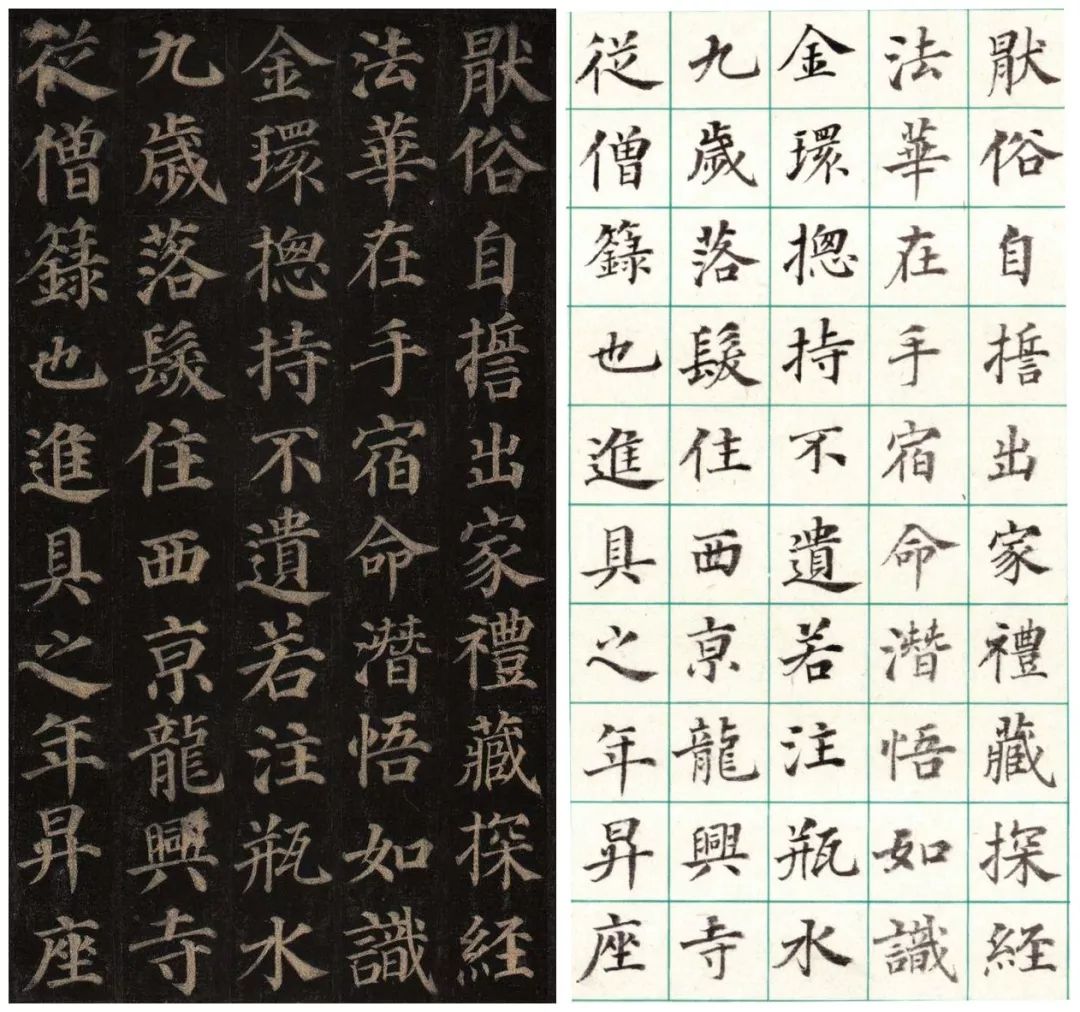 猒俗自誓出家禮藏探経
法華在手宿命潛悟如識
金環摠持不遺若注瓶水
九歲落髮住西亰龍興寺
從僧籙也進具之年昇座
猒俗自誓出家禮藏探経
法華在手宿命潛悟如識
金環摠持不遺若注瓶水
九歲落髮住西亰龍興寺
從僧籙也進具之年昇座